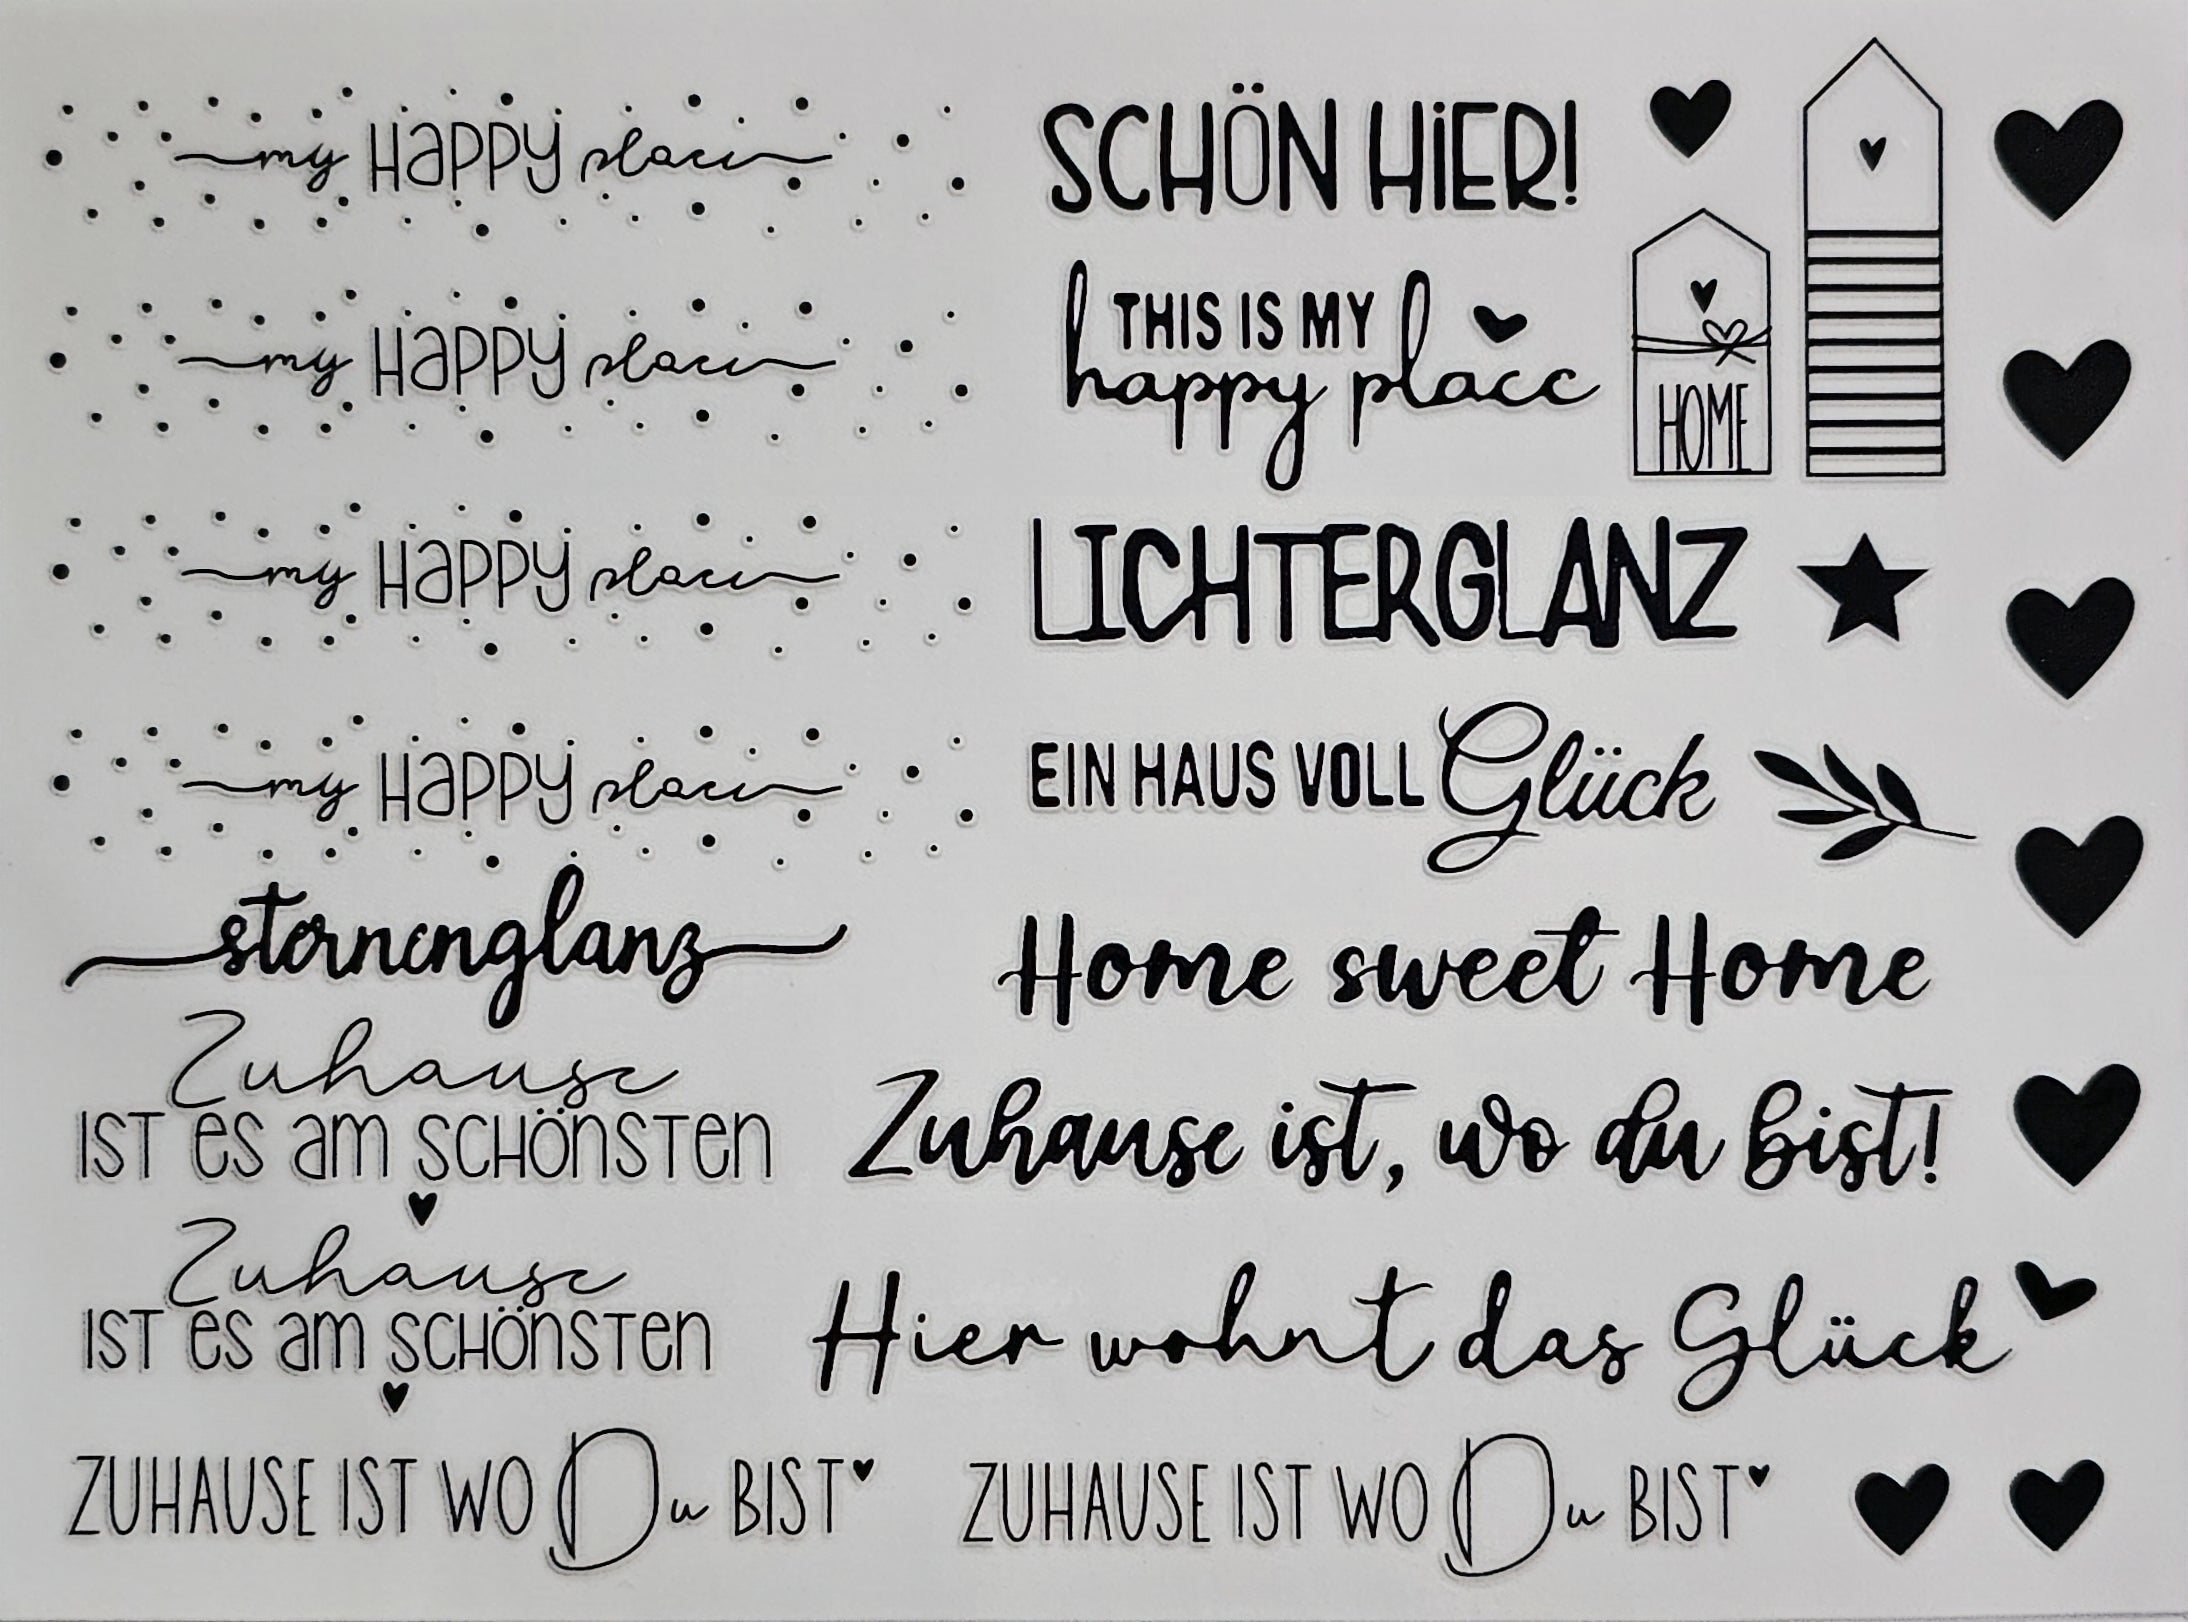 my HAPPY place
my HAPPY place
my HAPPY place
my HAPPY place
sternenglanz
Zuhause
IST ES AM SCHÖNSTEN
Zuhause
IST ES AM SCHÖNSTEN
ZUHAUSE IST WO Du BIST
SCHÖN HIER!
THIS IS MY
happy place
HOME
LICHTERGLANZ
EIN HAUS VOLL Glück
Home sweet Home
Zuhause ist, wo du bist!
Hier wohnt das Glück
ZUHAUSE IST WO Du BIST